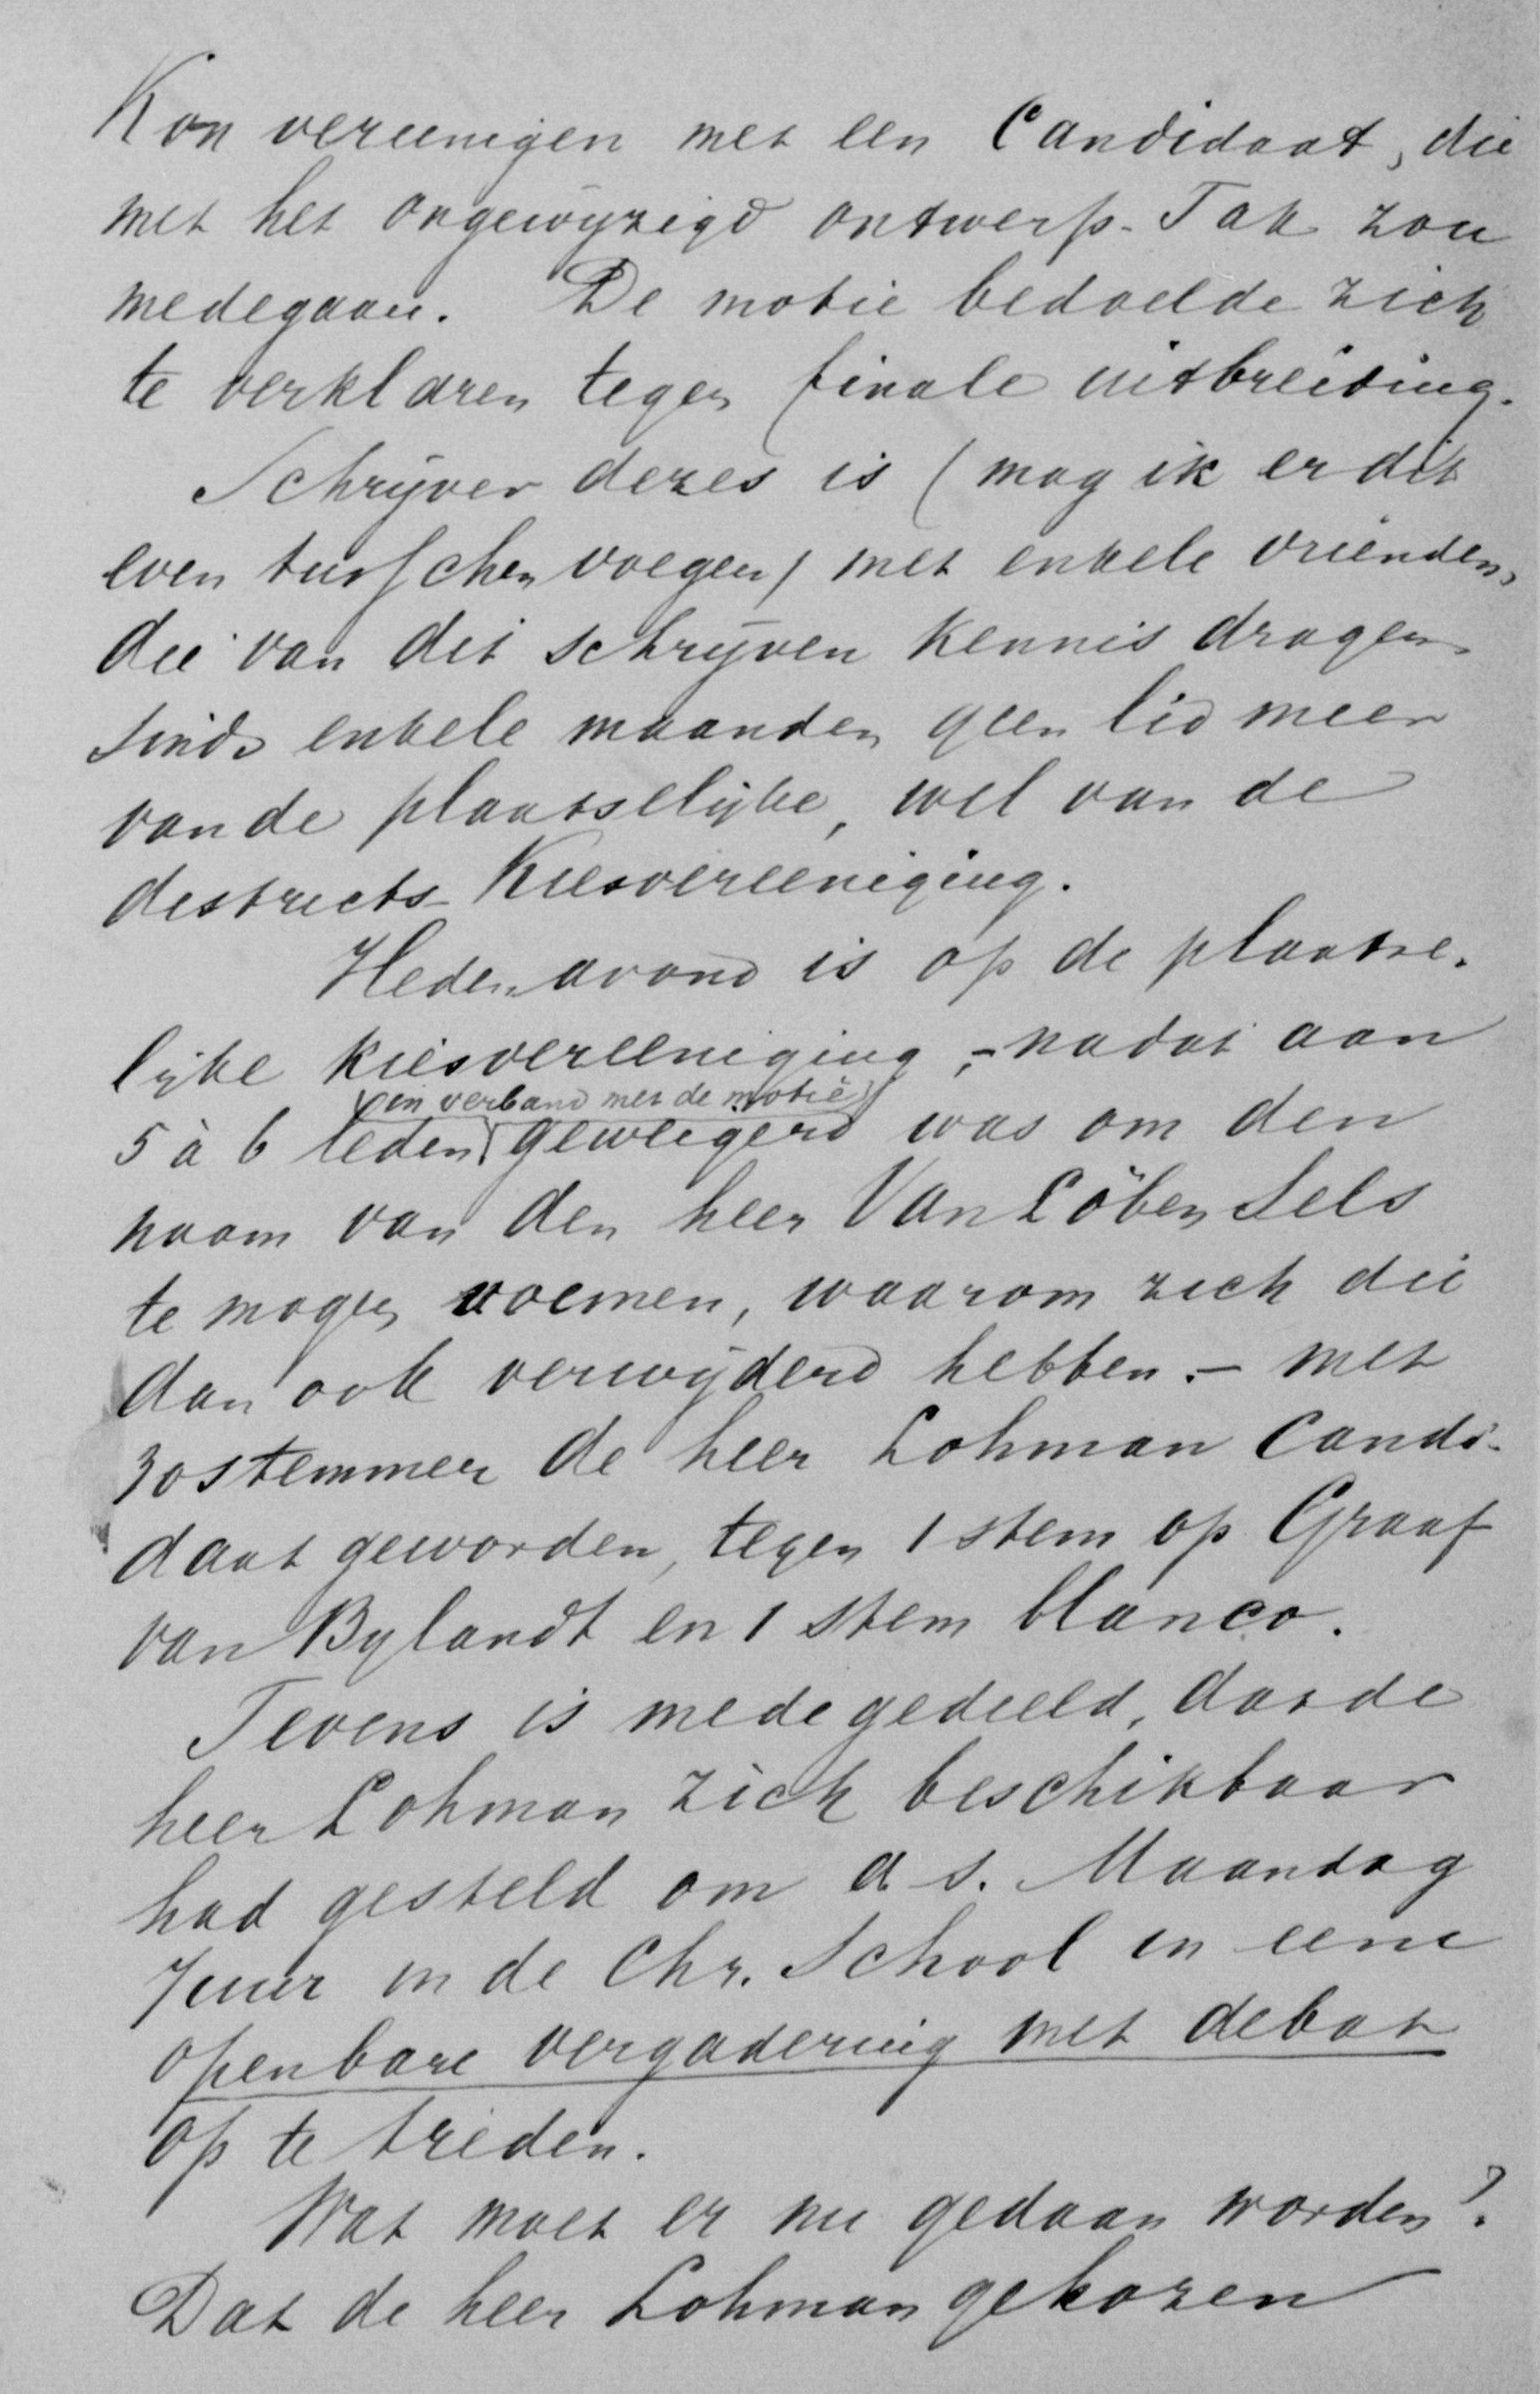 Kon vereenigen met een Candidaat, die
met het ongewijzigd ontwerp-Tak zou
medegaan. De motie bedoelde zich
te verklaren tegen finale uitbreiding.
Schrijver dezes is (mag ik er dit
even tusschen voegen) met enkele vrienden,
die van dit schrijven kennis dragen
sinds enkele maanden geen lid meer
van de plaatselijke, wel van de
districts-Kiesvereeniging.
Heden avond is op de plaatse-
lijke kiesvereeniging, - nadat aan
(in verband met de motie)
5 à 6 leden geweigerd was om den
naam van den heer Van Löben Sels
te mogen noemen, waarom zich die
dan ook verwijderd hebben. - met
30 stemmen de heer Lohman Candi-
daat geworden, tegen 1 stem op Graaf
van Bylandt en 1 stem blanco.
Tevens is medegedeeld, dat de
heer Lohman zich beschikbaar
had gesteld om a.s. Maandag
7 uur in de Chr. School in eene
openbare vergadering met debat
op te treden.
Wat moet er nu gedaan worden?
Dat de heer Lohman gekozen